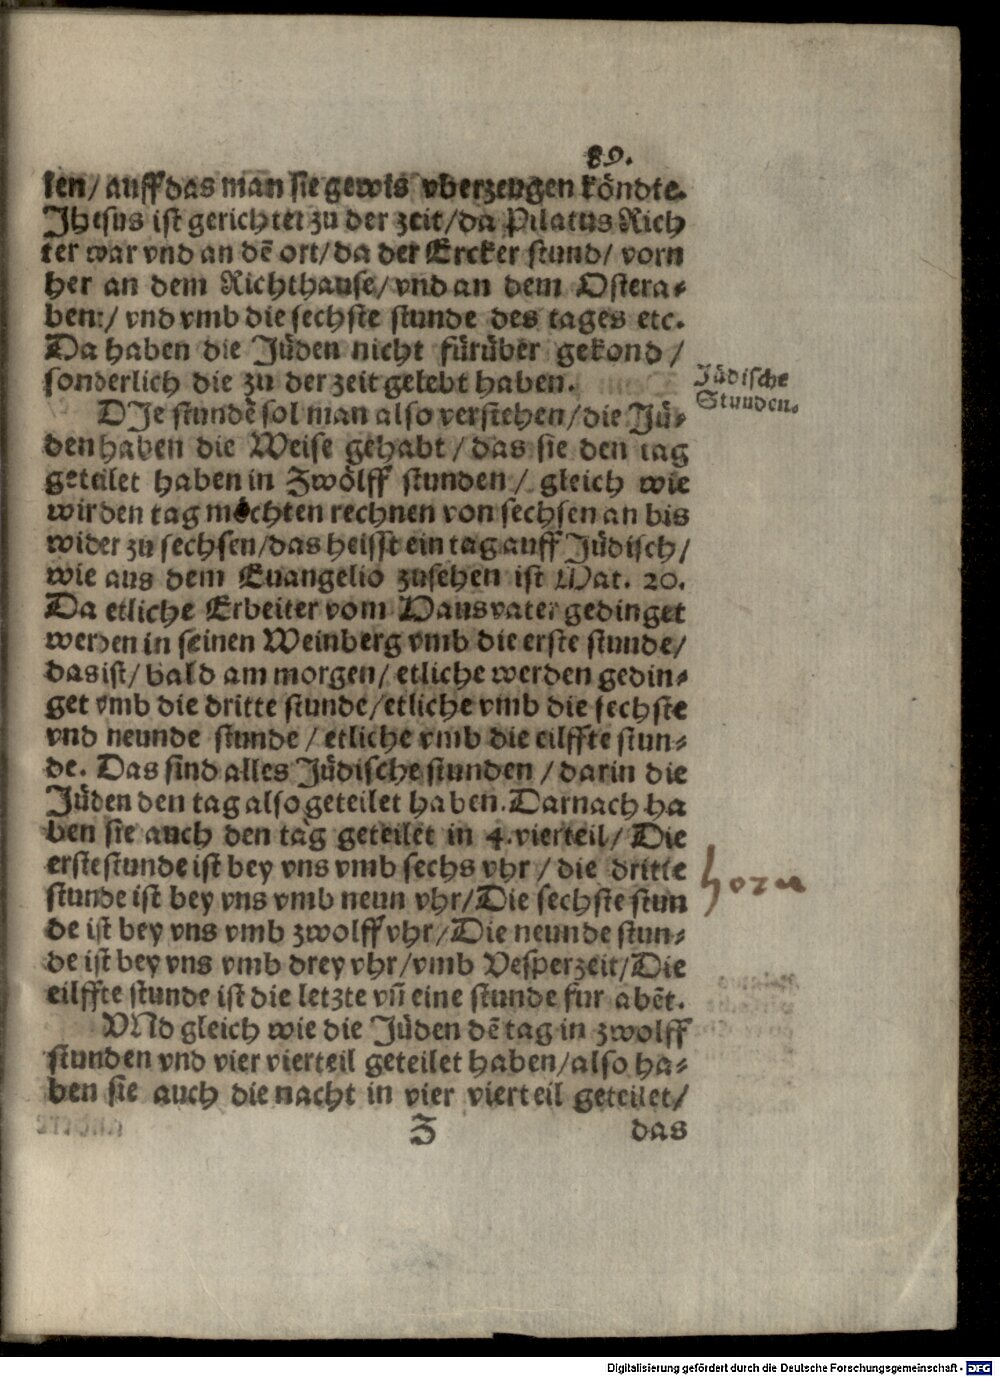 89.
ken/ auff das man sie gewis vberzeugen köndte.
Jhesus ist gerichtet zu der zeit/ da Pilatus Rich
ter war vnd an dē ort/ da der Ercker stund/ vorn
her an dem Richthause/ vnd an dem Ostera⸗
bent/ vnd vmb die sechste stunde des tages etc.
Da haben die Jüden nicht fürüber gekond/
sonderlich die zu der zeit gelebt haben.
Jüdische
Stunden.
DJe stundē sol man also verstehen/ die Jü⸗
den haben die Weise gehabt/ das sie den tag
geteilet haben in Zwölff stunden/ gleich wie
wir den tag möchten rechnen von sechsen an bis
wider zu sechsen/ das heisst ein tag auff Jüdisch/
wie aus dem Euangelio zusehen ist Mat. 20.
Da etliche Erbeiter vom Hausvater gedinget
werden in seinen Weinberg vmb die erste stunde/
das ist/ bald am morgen/ etliche werden gedin⸗
get vmb die dritte stunde/ etliche vmb die sechste
vnd neunde stunde/ etliche vmb die eilffte stun⸗
de. Das sind alles Jüdische stunden/ darin die
Jüden den tag also geteilet haben. Darnach ha
ben sie auch den tag geteilet in 4. vierteil/ Die
erste stunde ist bey vns vmb sechs vhr/ die dritte
horn
stunde ist bey vns vmb neun vhr/ Die sechste stun
de ist bey vns vmb zwolff vhr/ Die neunde stun⸗
de ist bey vns vmb drey vhr/ vmb Vesperzeit/ Die
eilffte stunde ist die letzte vñ eine stunde fur abēt.
VNd gleich wie die Jüden dē tag in zwolff
stunden vnd vier vierteil geteilet haben/ also ha⸗
ben sie auch die nacht in vier vierteil geteilet/
Z das
Digitalisierung gefördert durch die Deutsche Forschungsgemeinschaft - DFG